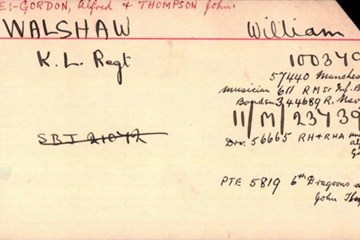 E:-GORDON, Alfred & THOMPSON John.
WALSHAW William
K. L. Regt 100379
57440 Manches
Musician 611 RMSr Inf. B
Bordon 344689 R.
11/M/23739
SBJ 21072
Drv. 56665 RH+RHA
PTE 5819 6th Dragoons
John Tho